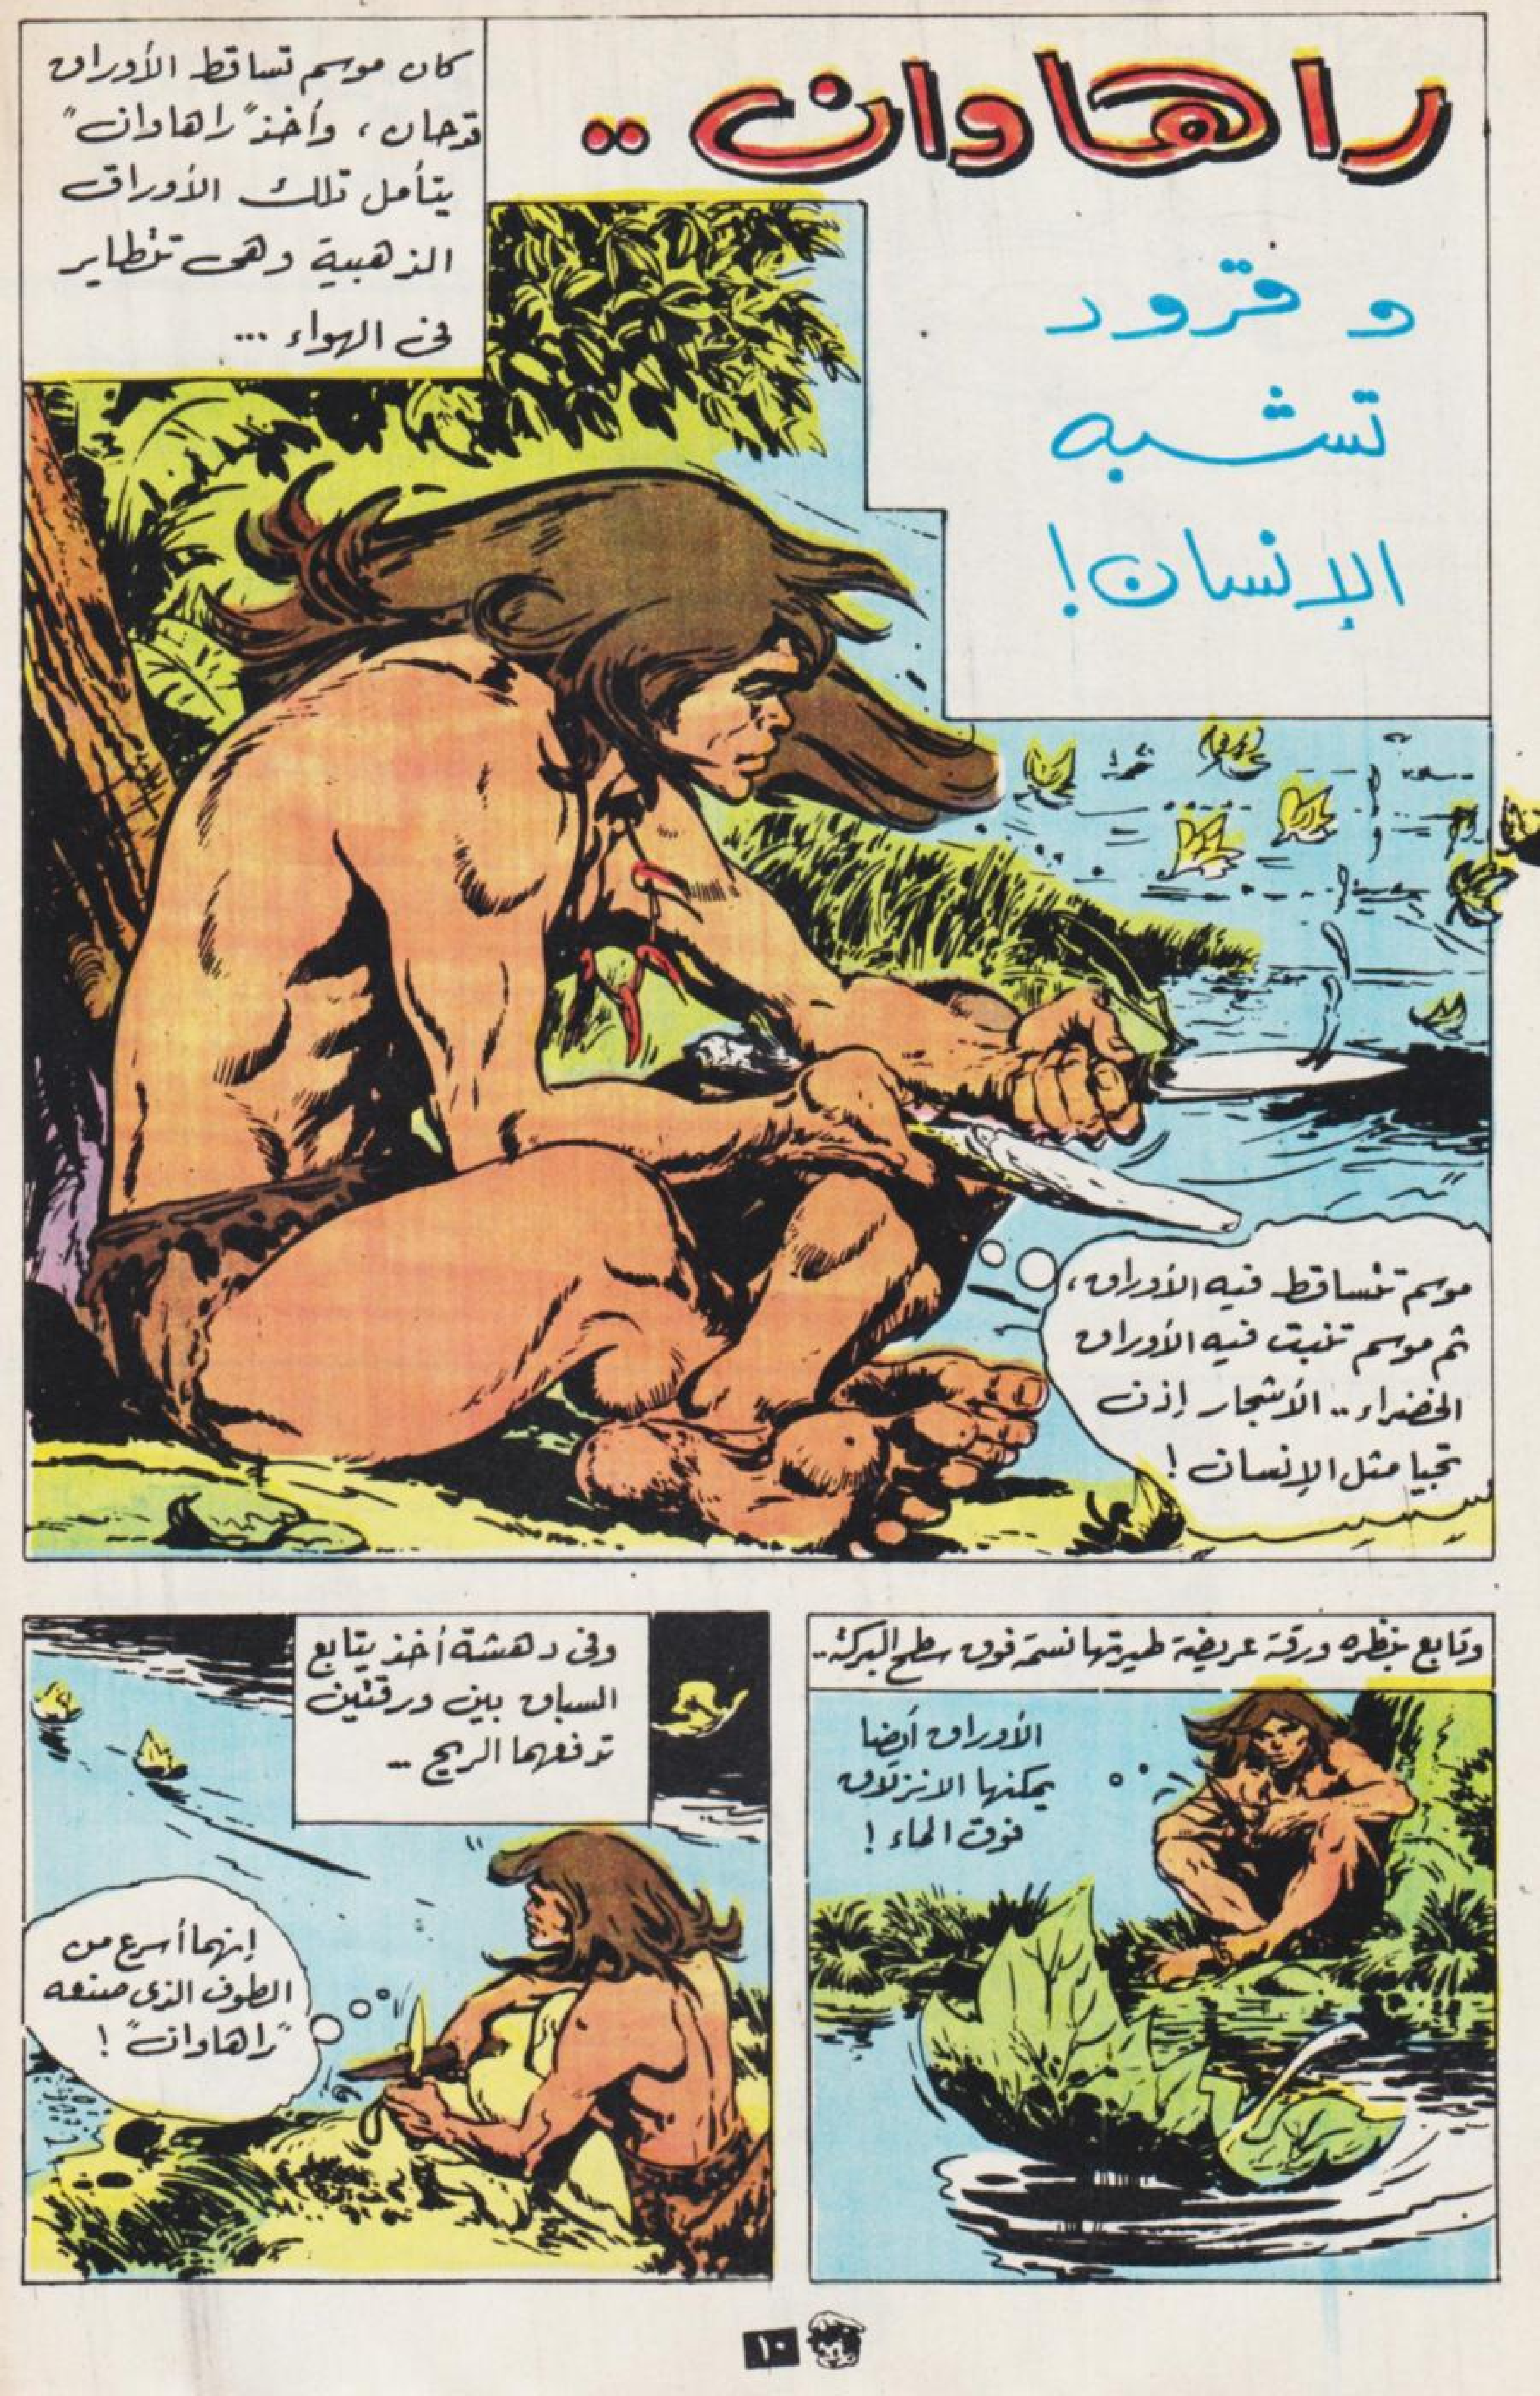 راهاوان ..
و قرود
تشبه
الإنسان!
كان موسم تساقط الأوراق
قد حان ، وأخذ "راهاوان"
يتأمل تلك الأوراق
الذهبية وهى تتطاير
فى الهواء ...
موسم تتساقط فيه الأوراق ،
ثم موسم تنبت فيه الأوراق
الخضراء .. الأشجار إذن
تحيا مثل الإنسان !
وتابع بنظره ورقة عريضة طيرتها نسمة فوق سطح البركة ..
الأوراق أيضا
يمكنها الانزلاق
فوق الماء !
وفى دهشة أخذ يتابع
السباق بين ورقتين
تدفعهما الريح ..
إنهما أسرع من
الطوف الذى صنعه
"راهاوان" !
١٠